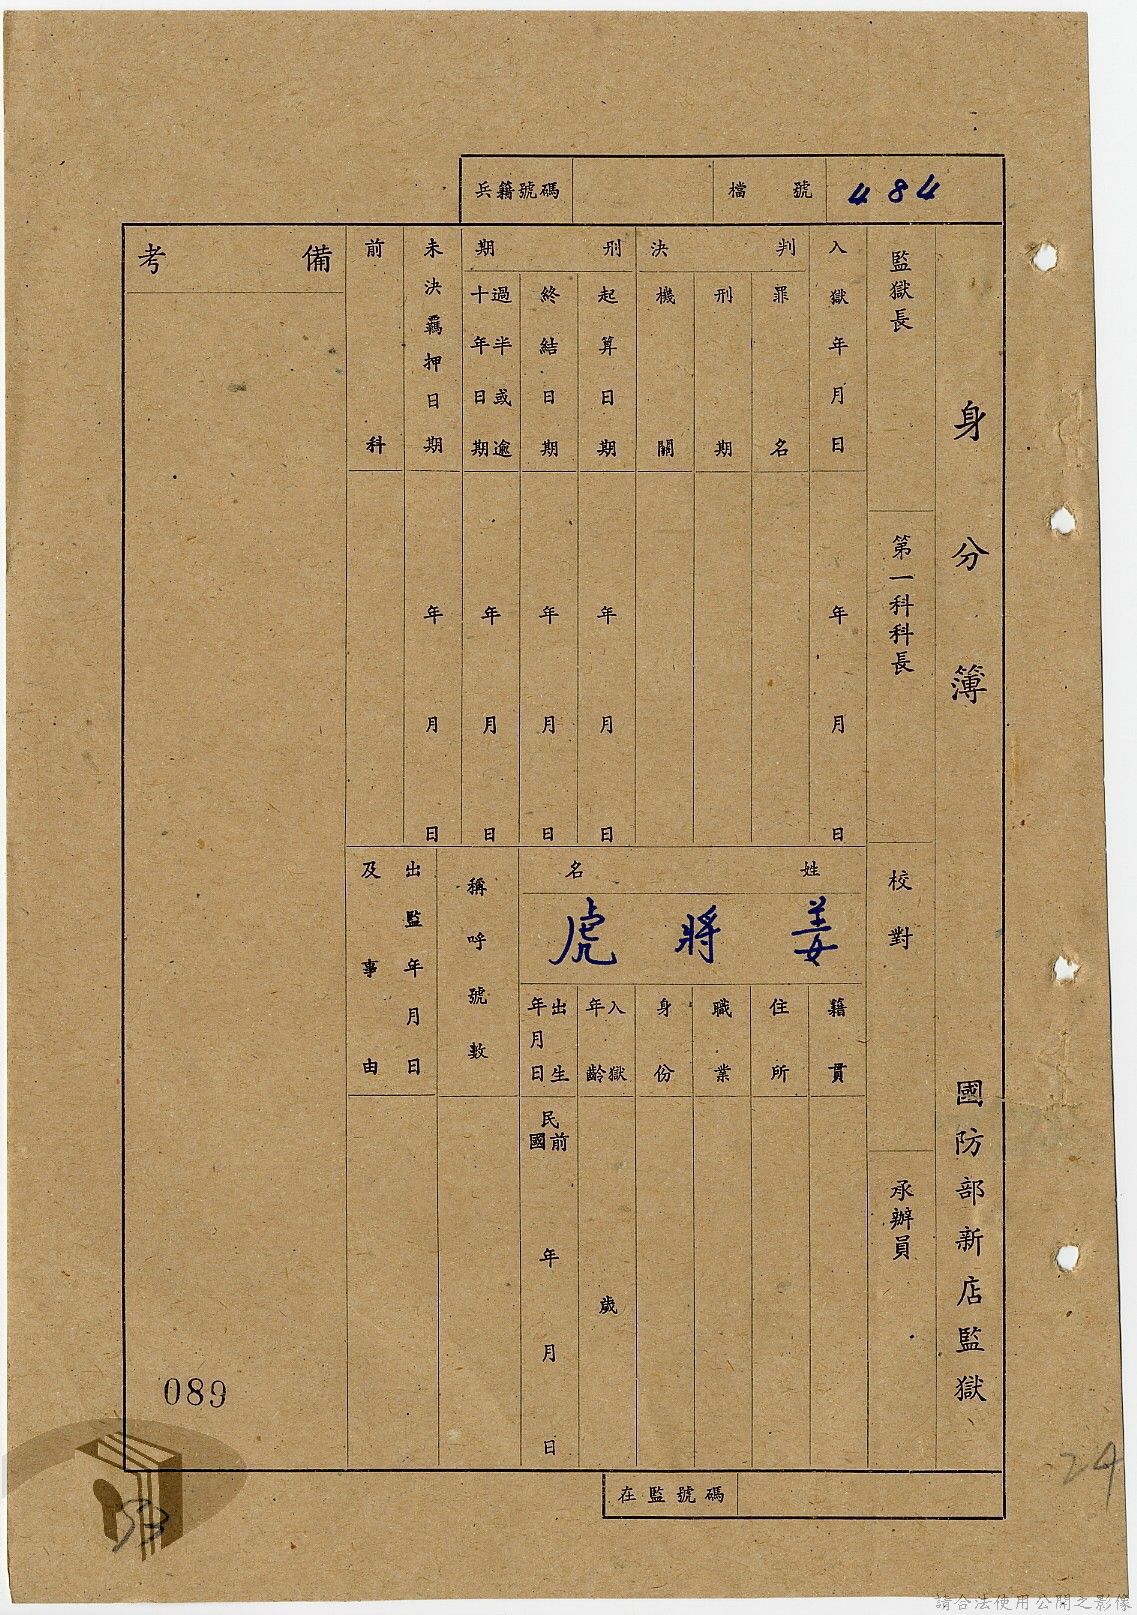 兵籍號碼
檔號
484
身分簿
國防部新店監獄
監獄長
第一科科長
校對
承辦員
入獄年月日
年月日
判決
罪名
刑期
機關
刑期
起算日期
年月日
終結日期
年月日
過半或逾
十年日期
年月日
未決羈押日期
年月日
前科
備考
姓名
姜將虎
籍貫
住所
職業
身份
入獄
年齡
歲
出生
年月日
民國前
年月日
稱呼號數
出監年月日
及事由
089
在監號碼
24
153
請合法使用公開之影像